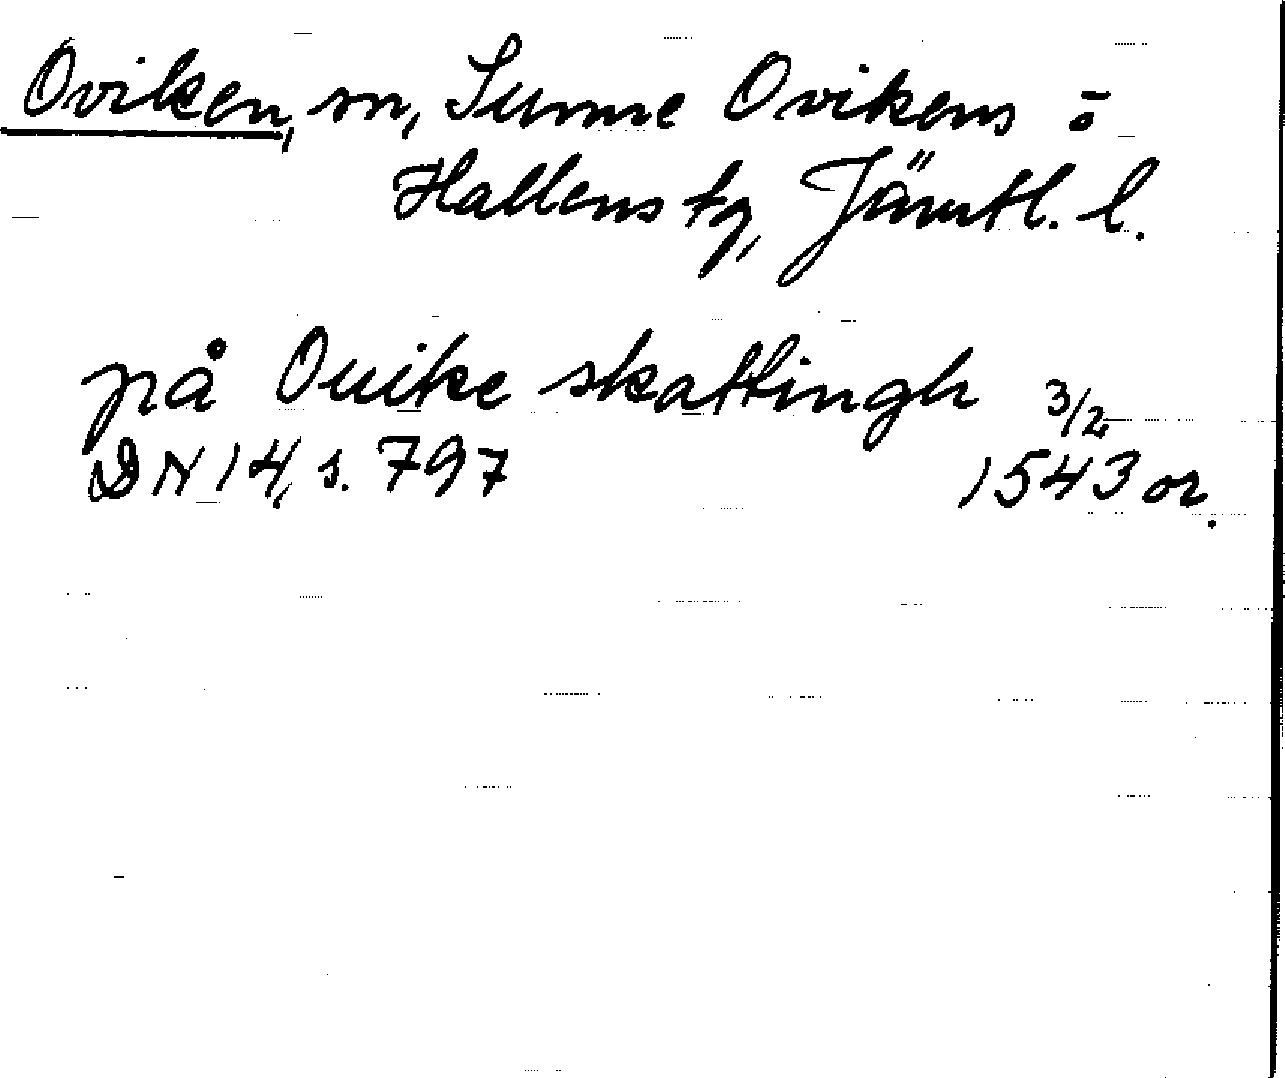 Oviken, sn, Sunne Ovikens o
Hallens tg, Jämtl. l.
på Ouike skattingh 3/2
DN 14, s. 797 1543 or.